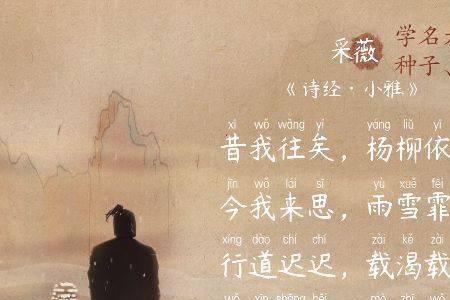 采薇
学名大
种子、
《诗经·小雅》
xī wǒ wǎng yǐ yáng liǔ yī
昔我往矣，杨柳依
jīn wǒ lái sī yù xuě fēi
今我来思，雨雪霏
xíng dào chí chí zài kě zài
行道迟迟，载渴载
wǒ xīn shāng bēi mò zhī wǒ